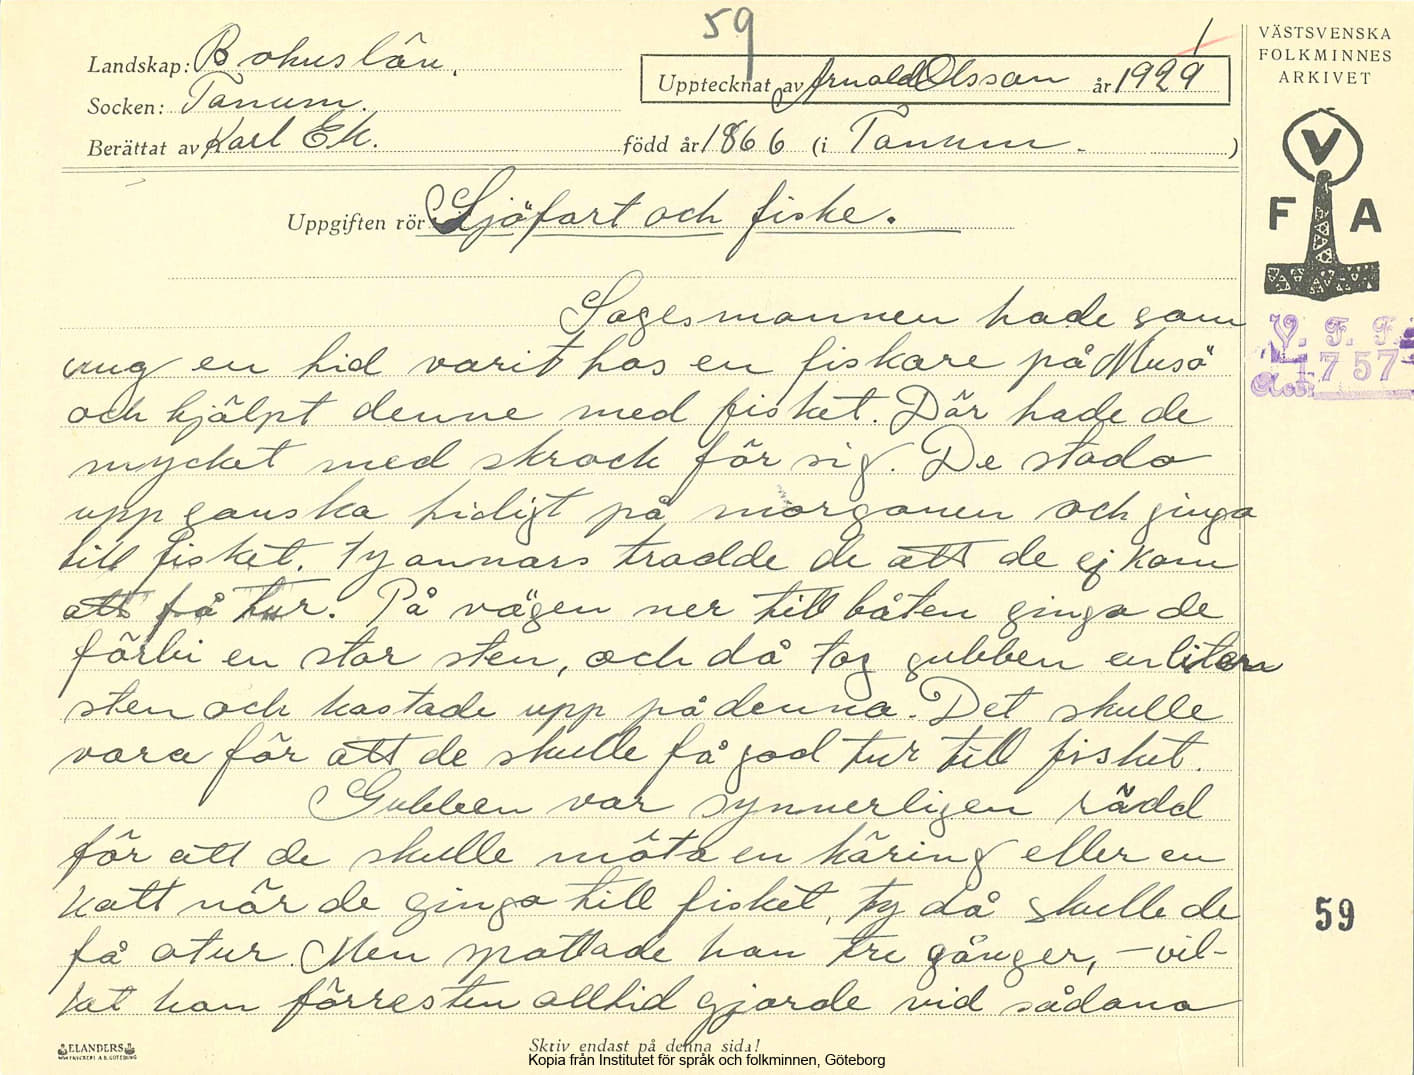 59
Landskap: Bohuslän.
Upptecknat av Arnold Olsson år 1929
1
Socken: Tanum.
Berättat av Karl Ek. född år 1866 (i Tanum. )
Uppgiften rör Sjöfart och fiske.
VÄSTSVENSKA
FOLKMINNES
ARKIVET
V
F A
V. F. F.
1757
Acc.
Sagesmannen hade som
ung en tid varit hos en fiskare på Musö
och hjälpt denne med fisket. Där hade de
mycket med skrock för sig. De stodo
upp ganska tidigt på morgonen och gingo
till fisket, ty annars trodde de att de ej kom
att få tur. På vägen ner till båten gingo de
förbi en stor sten, och då tog gubben en liten
sten och kastade upp på denna. Det skulle
vara för att de skulle få god tur till fisket.
Gubben var synnerligen rädd
för att de skulle möta en käring eller en
katt när de gingo till fisket, ty då skulle de
få otur. Men spottade han tre gånger, – vil-
ket han förresten alltid gjorde vid sådana
59
ELANDERS
Skriv endast på denna sida!
Kopia från Institutet för språk och folkminnen, Göteborg